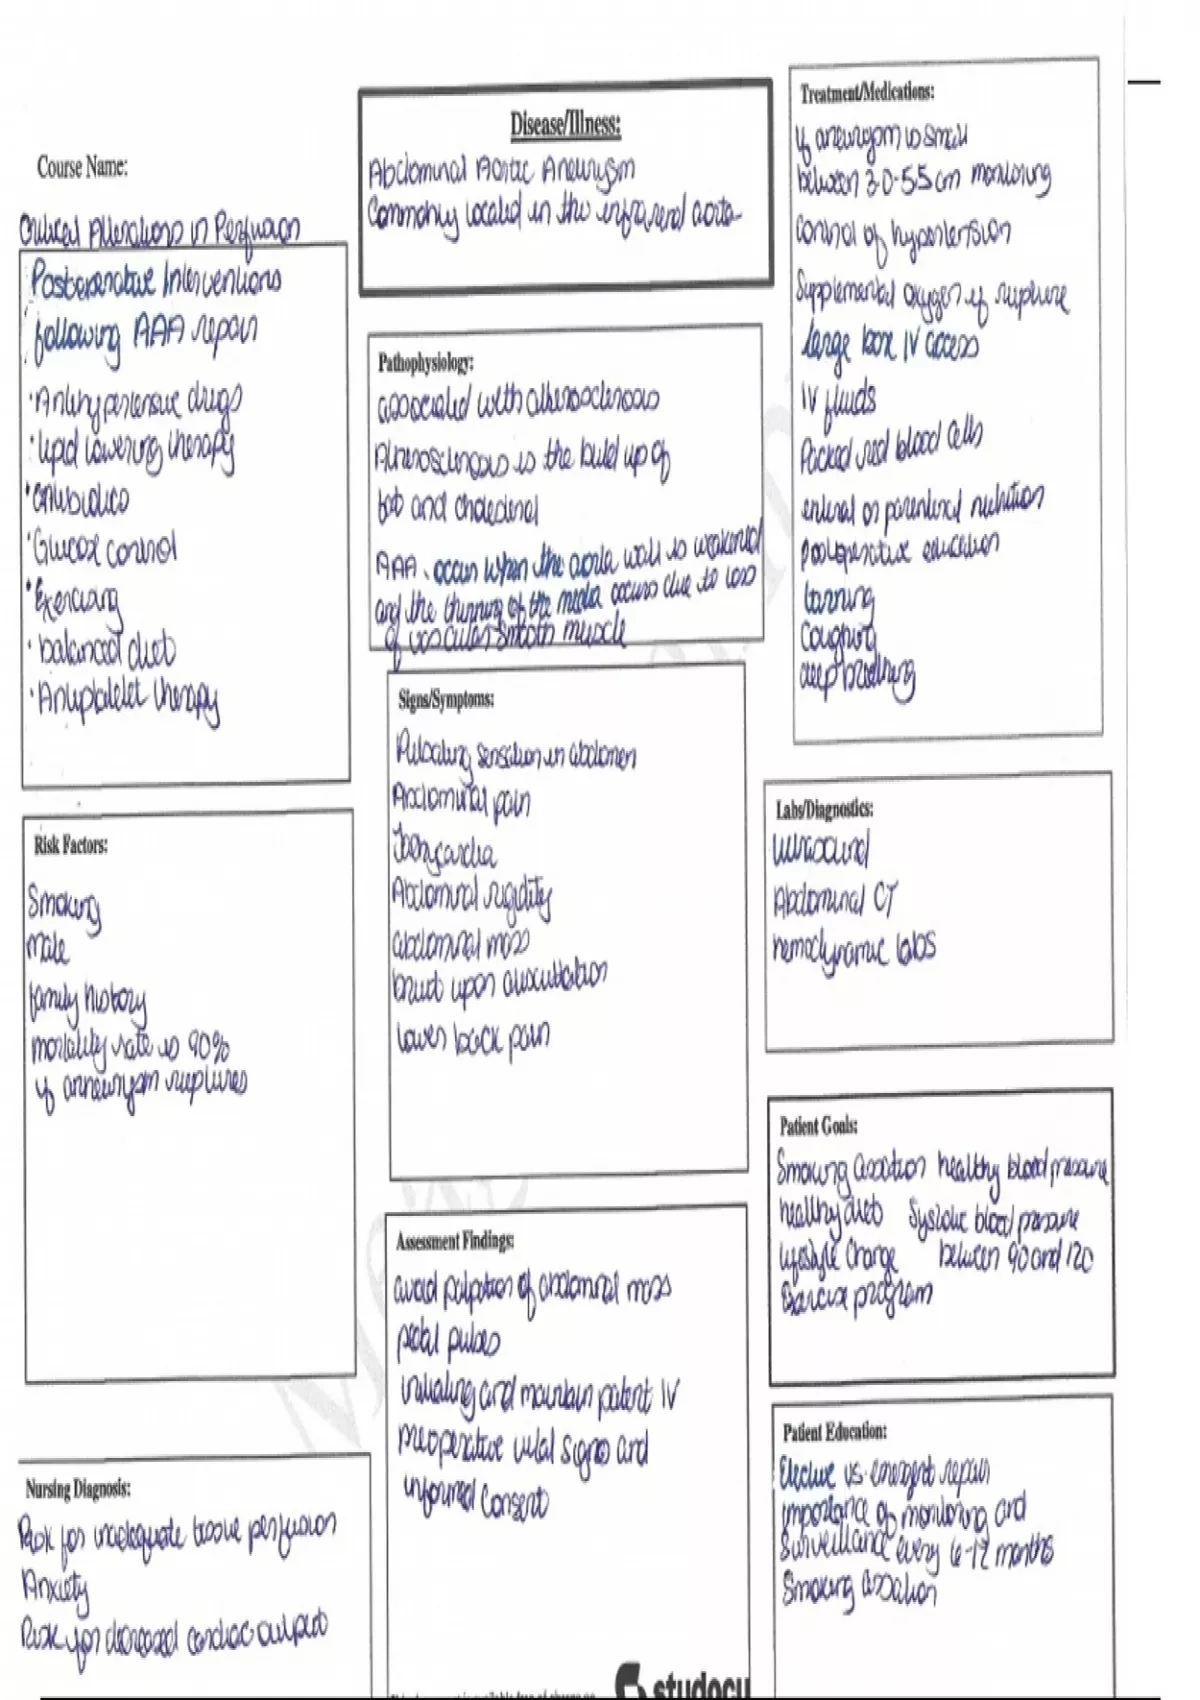 Course Name:
Critical Alterations in Perfusion
Postoperative Interventions
following AAA repair
·Antihypertensive drugs
·lipid lowering therapy
·antibiotics
·Glucose control
·Exercising
·balanced diet
·Antiplatelet therapy
Risk Factors:
Smoking
male
family history
mortality rate is 90%
if anneurysm ruptures
Nursing Diagnosis:
Risk for inadequate tissue perfusion
Anxiety
Risk for decreased cardiac output
Disease/Illness:
Abdominal Aortic Aneurysm
Commonly located in the infrarenal aorta
Pathophysiology:
associated with atherosclerosis
Atherosclerosis is the build up of
fat and cholesterol
AAA occurs when the aorta wall is weakened
and the thinning of the media occurs due to loss
of vascular smooth muscle
Signs/Symptoms:
Pulsating sensation in abdomen
Abdominal pain
Abdominal rigidity
abdominal mass
bruit upon auscultation
lower back pain
Assessment Findings:
avoid palpation of abdominal mass
pedal pulses
initiating and maintain patent IV
preoperative vital signs and
informed consent
studocu
Treatment/Medications:
if aneurysm is small
between 3.0-5.5 cm monitoring
Control of hypertension
Supplemental oxygen if rupture
large bore IV access
IV fluids
Packed red blood cells
enteral or parenteral nutrition
postoperative education
turning
Coughing
deep breathing
Labs/Diagnostics:
ultrasound
Abdominal CT
hemodynamic labs
Patient Goals:
Smoking cessation healthy blood pressure
healthy diet Systolic blood pressure
lifestyle change between 90 and 120
Exercise program
Patient Education:
Elective vs. emergent repair
importance of monitoring and
Surveillance every 6-12 months
Smoking cessation